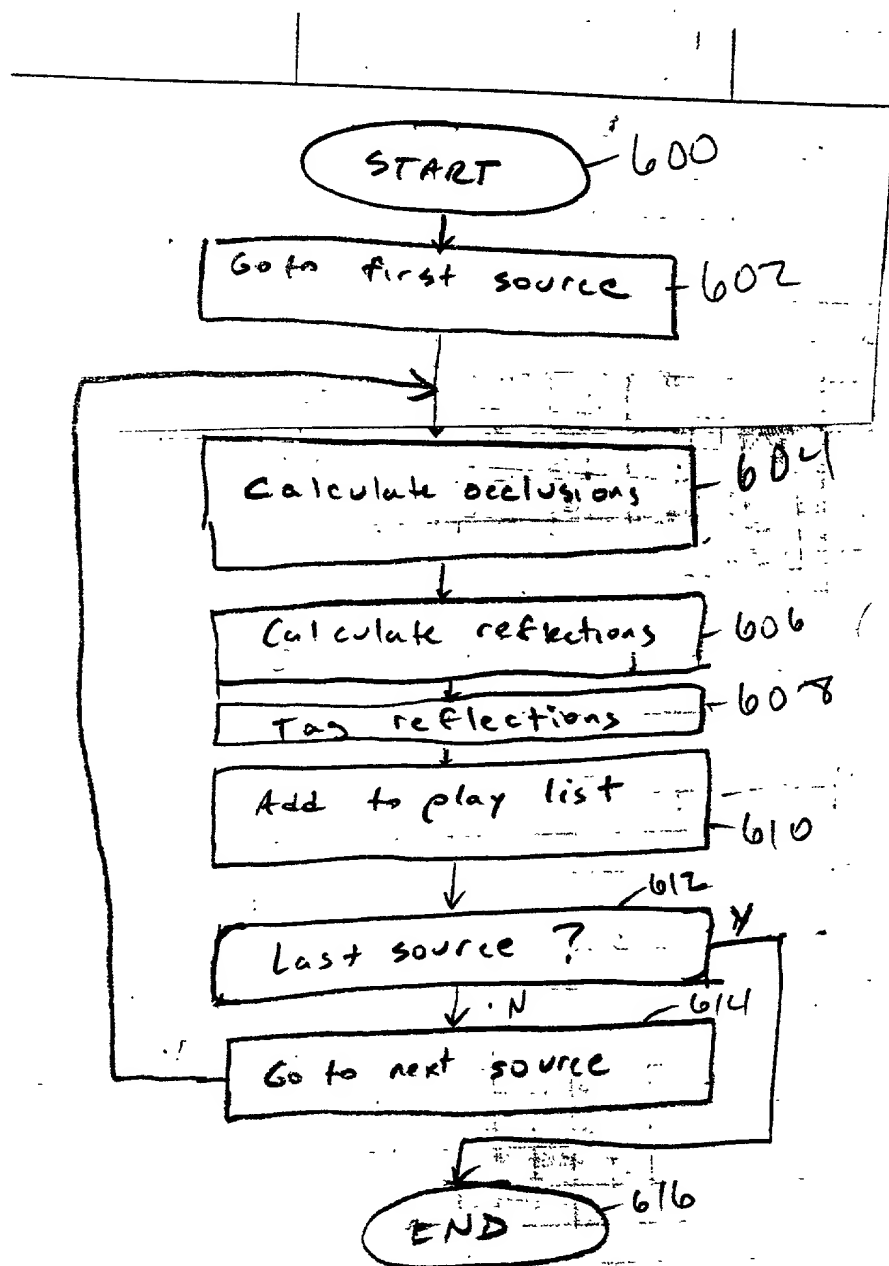 START 600
Go to first source 602
Calculate occlusions 604
Calculate reflections 606
Tag reflections 608
Add to play list 610
612
Last source ? Y
N
614
Go to next source
END 616